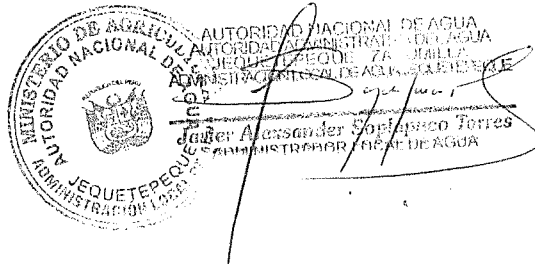 MINISTERIO DE AGRICULTURA
AUTORIDAD NACIONAL DE AGUA
ADMINISTRACION LOCAL DE
JEQUETEPEQUE
AUTORIDAD NACIONAL DE AGUA
AUTORIDAD ADMINISTRATIVA DEL AGUA
JEQUETEPEQUE ZARUMILLA
ADMINISTRACION LOCAL DE AGUA JEQUETEPEQUE
Javier Alexsander Soplapuco Torres
ADMINISTRADOR LOCAL DE AGUA